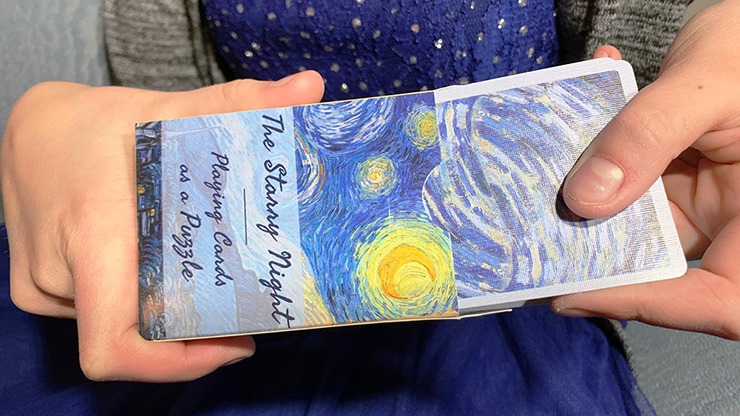 The Starry Night
Playing Cards
as a Puzzle